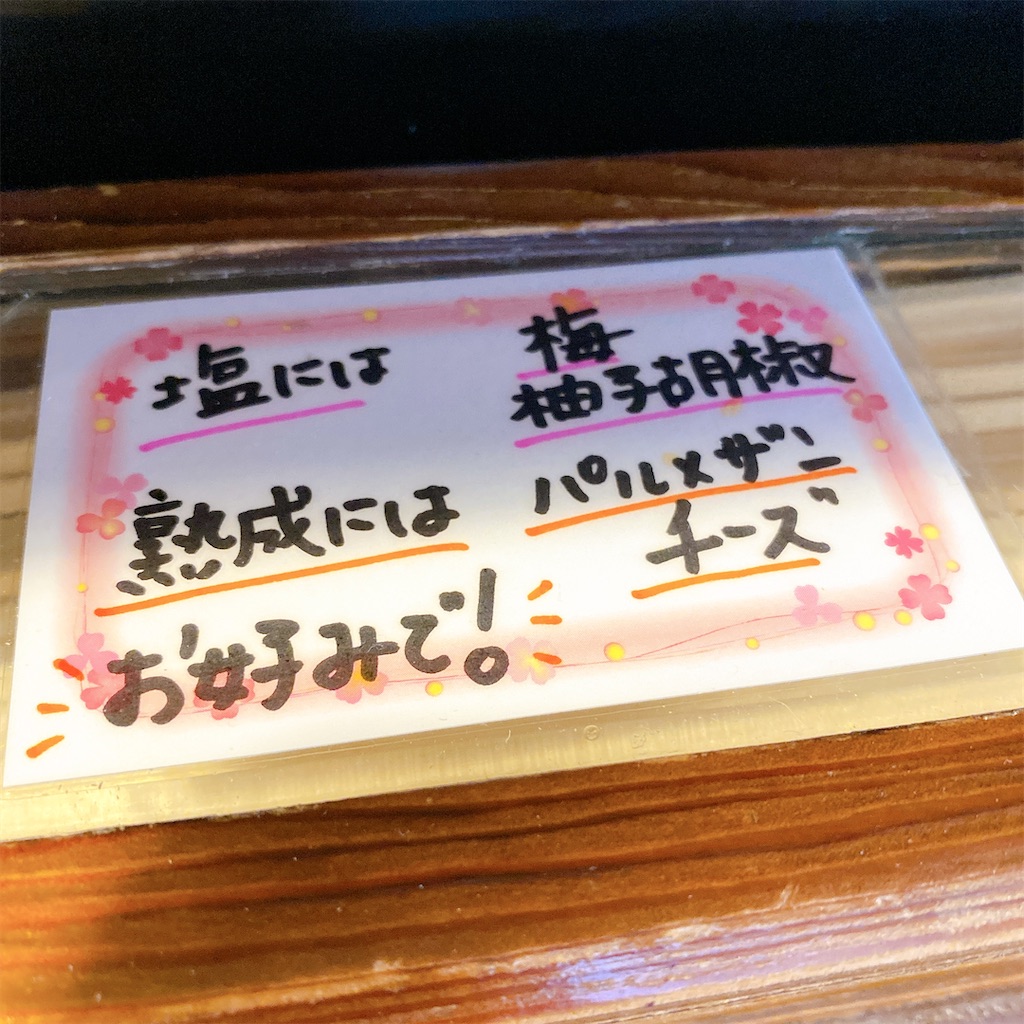 塩には 梅
柚子胡椒
熟成には パルメザン
チーズ
お好みで!